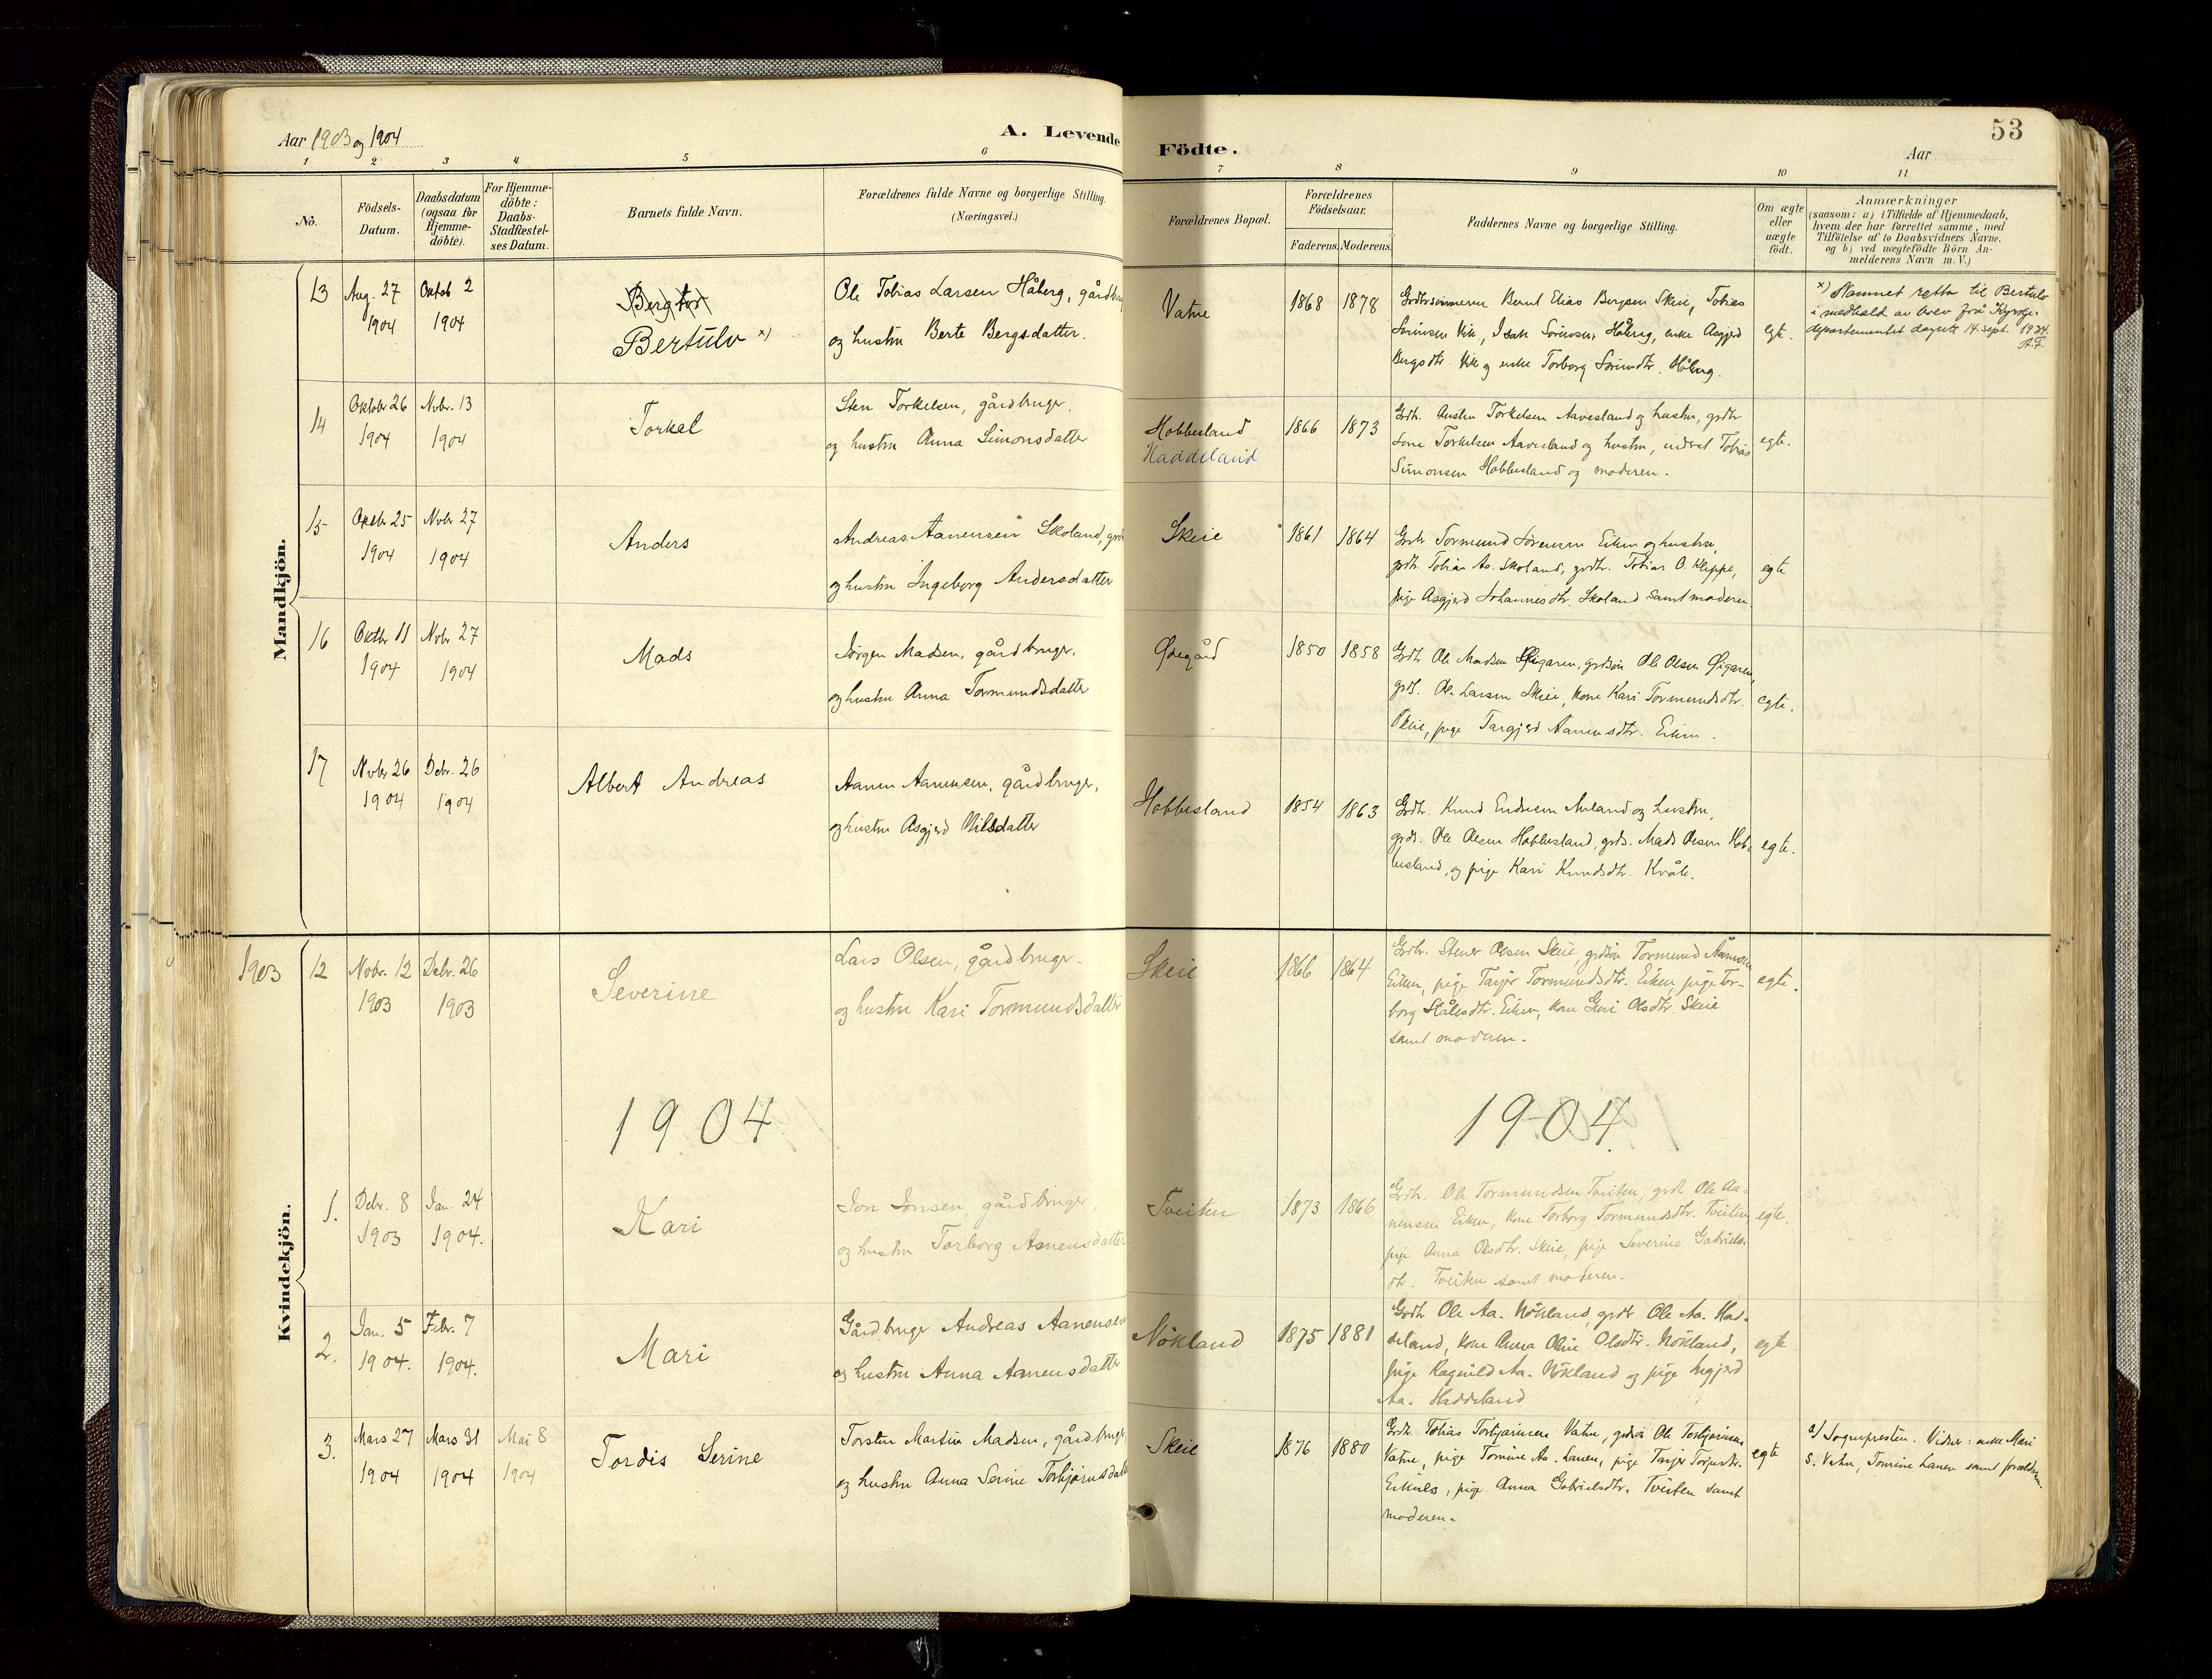 53
Aar 1903 og 1904
A. Levende Födte.
Aar
1 2 3 4 5 6 7 8 9 10 11
No.
Födsels-Datum.
Daabsdatum (ogsaa for Hjemme-döbte).
For Hjemme-döbte: Daabs-Stadfæstel-ses Datum.
Barnets fulde Navn.
Forældrenes fulde Navne og borgerlige Stilling. (Næringsvei.)
Forældrenes Bopæl.
Forældrenes Födselsaar.
Faderens. Moderens.
Faddernes Navne og borgerlige Stilling.
Om ægte eller uægte födt.
Anmærkninger
(saasom: a) i Tilfælde af Hjemmedaab,
hvem der har forrettet samme, med
Tilföielse af to Daabsvidners Navne,
og b) ved uægtefödte Börn An-
melderens Navn m. V.)
Mandkjön.
13 Aug. 27 1904 Oktob 2 1904
Bergtor
Bertulv x)
Ole Tobias Larsen Håberg, gårdbr
og hustru Berte Bergsdatter.
Vatne 1868 1878
Tobias
Sörensen Vik, Isak Sörensen Håberg, enke Asgjerd
Bergsdtr. Vik og enke Torborg Håberg.
egt.
x) Namnet retta til Bertulv
i medhald av brev frå Kyrkje-
departementet dagsett 14. sept. 1934.
A.F.
14 Oktober 26 1904 Novbr. 13 1904
Torkel
Sten Torkelsen, gårdbruger.
og hustru Anna Simonsdatter
Hobbesland
Haddeland
1866 1873
Grdbr. Austen Torkelsen Aavesland og hustru, grdbr
Torkelsen Aavesland og hustru, Tobias
Simonsen Hobbesland og moderen.
egte.
15 Oktbr 25 1904 Novbr 27 1904
Anders
Andreas Aanensen Skoland, grdb
og hustru Ingeborg Andersdatter
Skeie 1861 1864
Grdbr Tormund Sörensen Eiken og hustru,
grdbr. Tobias Aa. Skoland, grdbr. Tobias O. Kleppe,
pige Asgjerd Johannesdtr. Skoland samt moderen.
egte
16 Oktbr 11 1904 Novbr 27 1904
Mads
Jörgen Madsen, gårdbruger.
og hustru Anna Tormundsdatter
Ödegård 1850 1858
Grdbr Ole Madsen grdsön Ole Olsen
grdb. Ole Larsen Skeie, kone Kari Tormundsdtr.
Skeie, pige Targjerd Aanensdtr. Eiken.
egte.
17 Novbr 26 1904 Debr. 26 1904
Albert Andreas
Aanen Aanensen, gårdbruger,
og hustru Asgjerd Nilsdatter
Hobbesland 1854 1863
Grdbr. Knud Endresen og hustru,
grdb. Ole Olsen Hobbesland, grdb. Mads Olsen Hob-
besland, og pige Kari Knudsdtr. Kvåle.
egte.
Kvindekjön.
1903
12 Novbr. 12 1903 Debr. 26 1903
Severine
Lars Olsen, gårdbruger.
og hustru Kari Tormundsdatter
Skeie 1866 1864
Grdbr. Stener Olsen Skeie, grdsön Tormund Aanensen
Eiken, pige Tarjer Tormundsdtr. Eiken, pige Tor-
borg Ståledtr. Eiken, kone Guri Olsdtr. Skeie
samt moderen.
egte.
1904 1904
1. Debr. 8 1903 Jan. 24 1904.
Kari
Jon Jonsen, gårdbruger,
og hustru Torborg Aanensdatter
Tveiten 1873 1866
Grdbr. Ole Tormundsen Tveiten, grdb Ole Aa-
nensen Eiken, kone Torborg Tormundsdtr. Tveiten
pige Anna Olsdtr. Skeie, pige Severine Gabriels-
dtr. Tveiten samt moderen.
egte.
2. Jan. 5 1904. Febr. 7 1904.
Mari
Gårdbruger Andreas Aanensen
og hustru Anna Aanensdatter
Nökland 1875 1881
Grdbr Ole Aa. Nökland, grdb Ole Aa. Had-
deland, kone Anna Olsdtr. Nökland,
pige Ragnild Aa. Nökland og pige
Aa. Haddeland
egte
3. Mars 27 1904 Mars 31 1904 Mai 8 1904
Tordis Serine
Torsten Martin Madsen, gårdbruger
og hustru Anna Serine Torbjörnsdatt
Skeie 1876 1880
Grdbr. Tobias Torbjörnsen Vatne, grdsön Ole Torbjörnsen
Vatne, pige Tomine Aa. Lanen, pige Tarjer
pige Anna Gabrielsdtr. Tveiten samt
moderen.
egte
a) Sognepresten. Vidner: enke Mari
S. Vatne, Tomine Lanen samt forældrene.